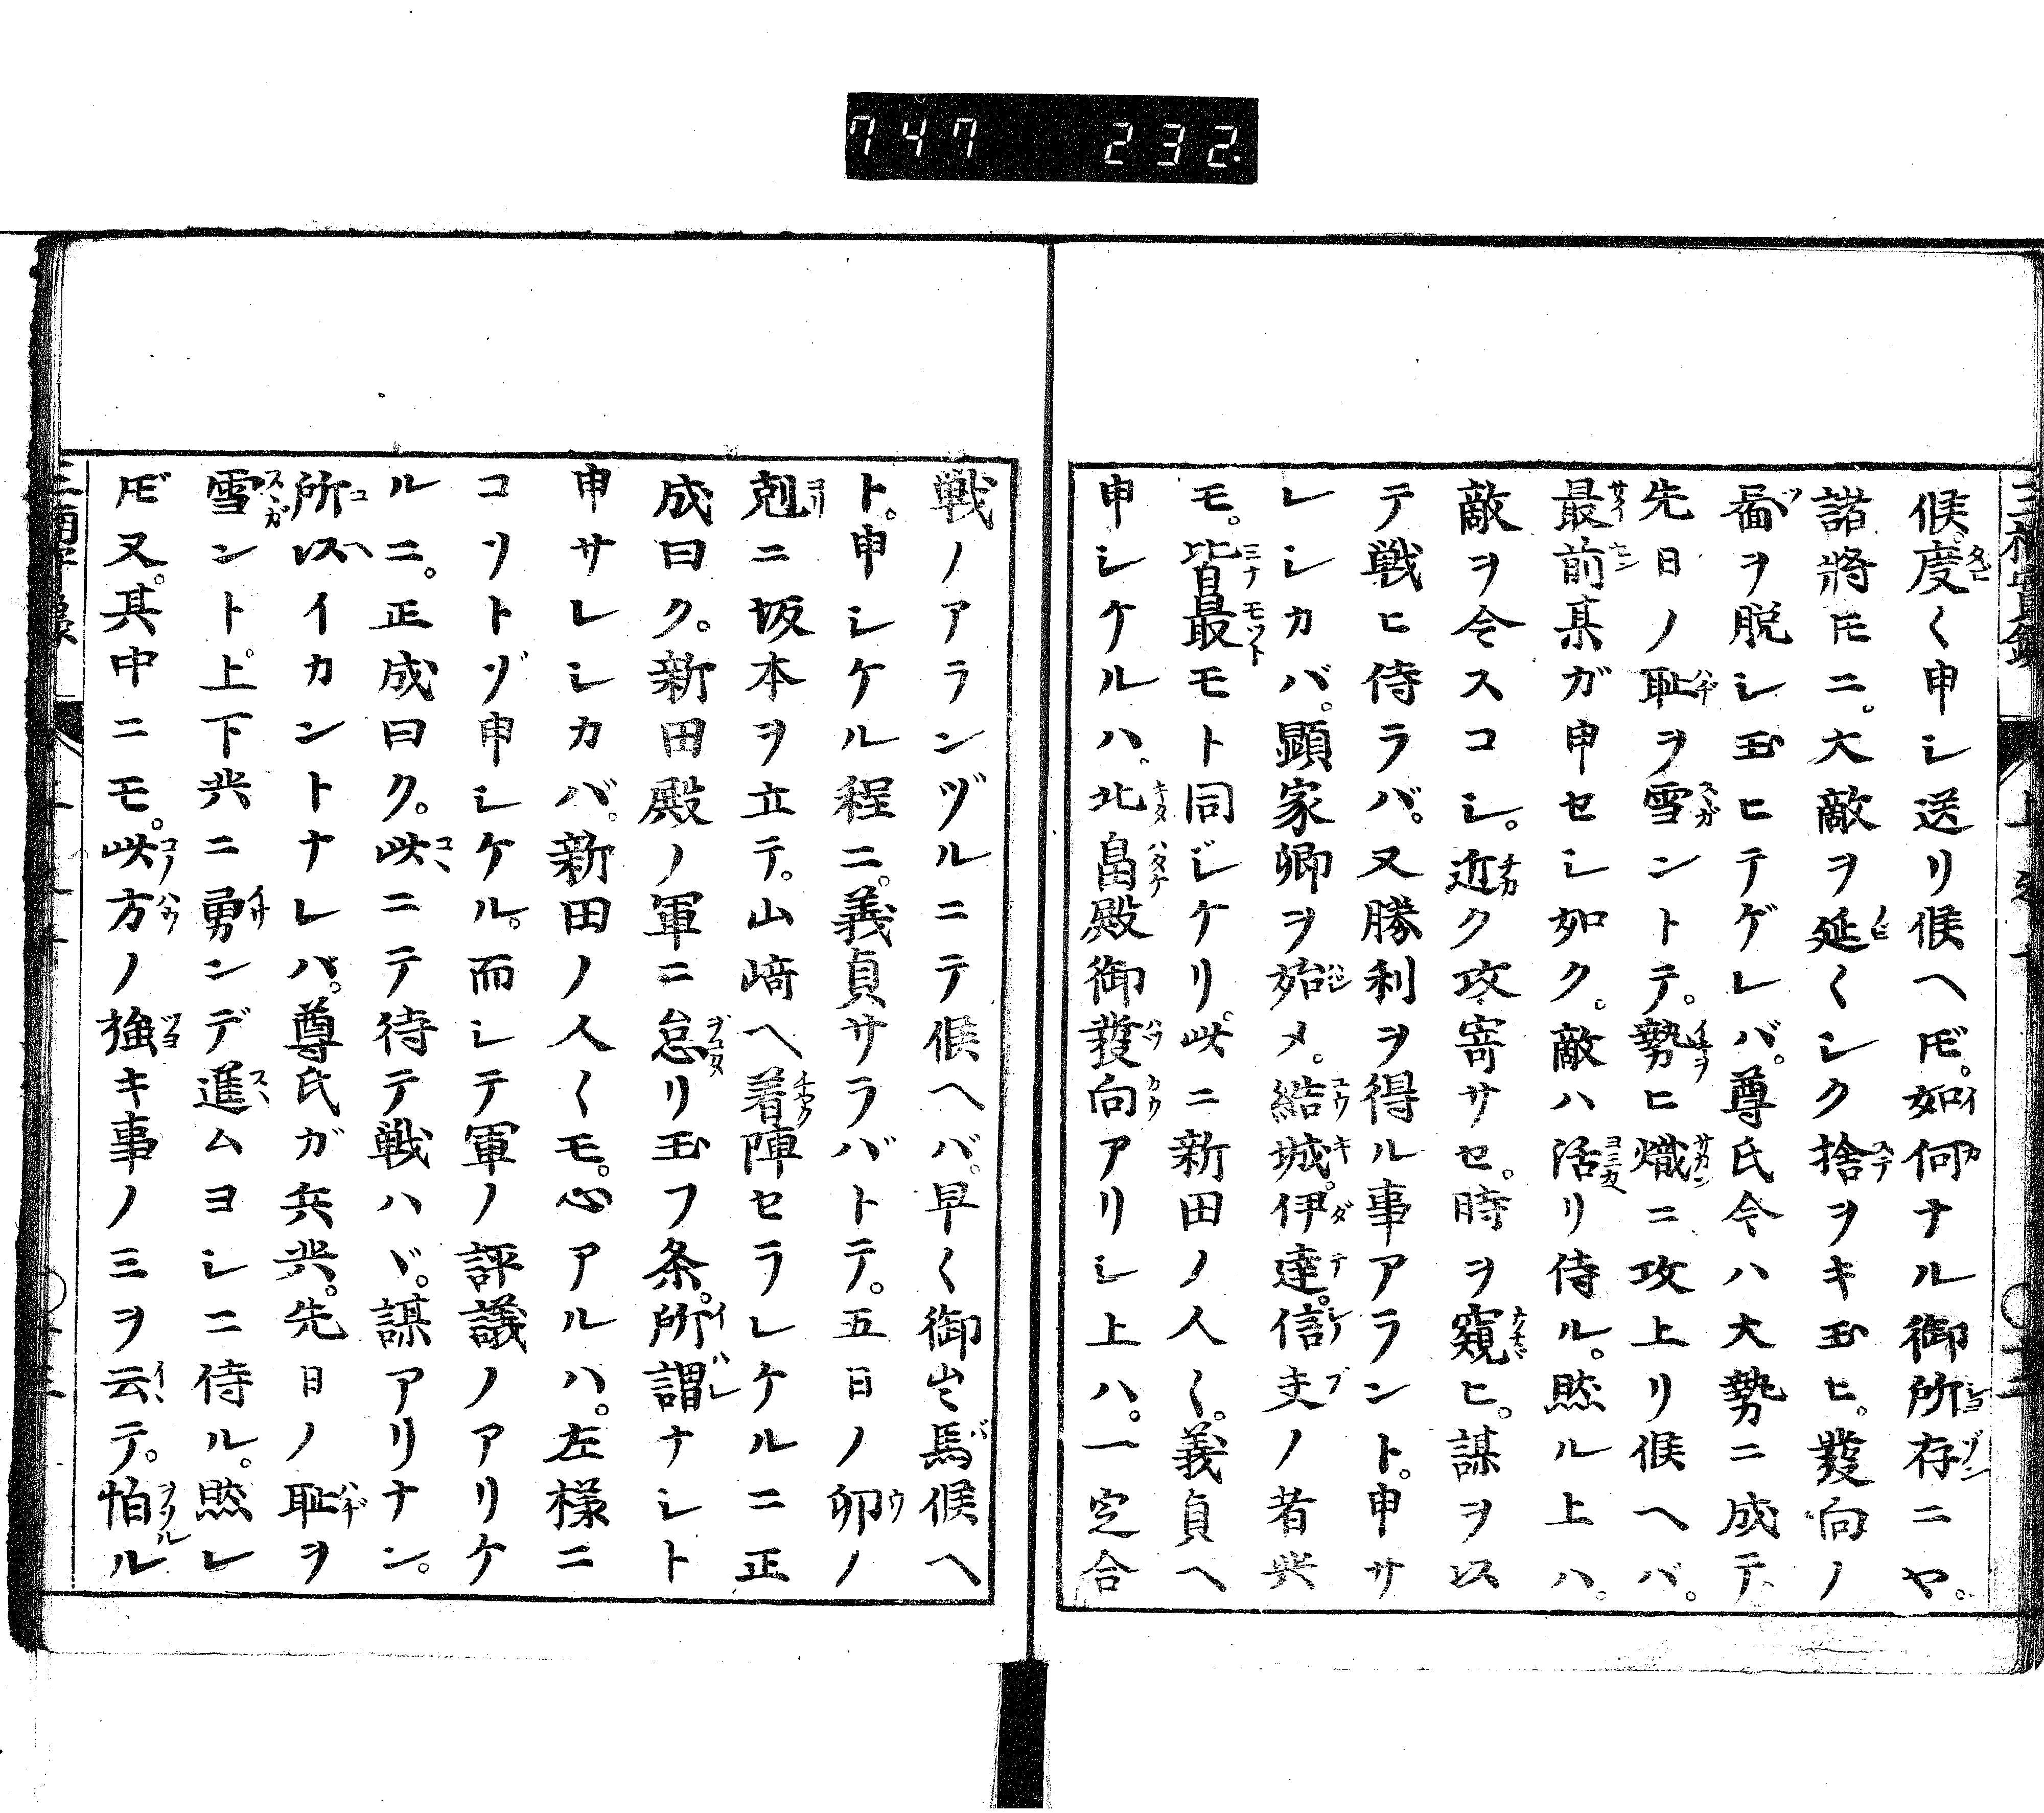 747 232.
候。度〱申シ送リ候ヘ𪜈。如何ナル御所存ニヤ。
諸將𪜈ニ。大敵ヲ延〱シク捨ヲキ玉ヒ。發向ノ
ヲ脱シ玉ヒテゲレバ。尊氏今ハ大勢ニ成テ
先日ノ恥ヲ雪ントテ。勢ヒ熾ニ攻上リ候ヘバ。
最前某ガ申セシ如ク。敵ハ活リ侍ル。然ル上ハ。
敵ヲ今スコシ。近ク攻寄サセ。時ヲ窺ヒ。謀ヲ以
テ戦ヒ侍ラバ。又勝利ヲ得ル事アラント。申サ
レシカバ。顕家卿ヲ始メ。結城。伊達。信夫ノ者共
モ。皆最モト同ジケリ。此ニ新田ノ人〱。義貞ヘ
申シケルハ。北畠殿御發向アリシ上ハ。一定合
戦ノアランヅルニテ候ヘバ。早〱御出馬候ヘ
ト。申シケル程ニ。義貞サラバトテ。五日ノ卯ノ
剋ニ坂本ヲ立テ。山﨑ヘ着陣セラレケルニ正
成曰ク。新田殿ノ軍ニ怠リ玉フ条。所謂ナシト
申サレシカバ。新田ノ人〱モ。心アルハ。左様ニ
コソトゾ申シケル。而シテ軍ノ評議ノアリケ
ルニ。正成曰ク。此ニテ待テ戦ハヾ。謀アリナン。
所以イカントナレバ。尊氏ガ兵共。先日ノ恥ヲ
雪ント。上下共ニ勇ンデ進ムヨシニ侍ル。然レ
𪜈又。其中ニモ。此方ノ強キ事ノミヲ云テ。怕ル